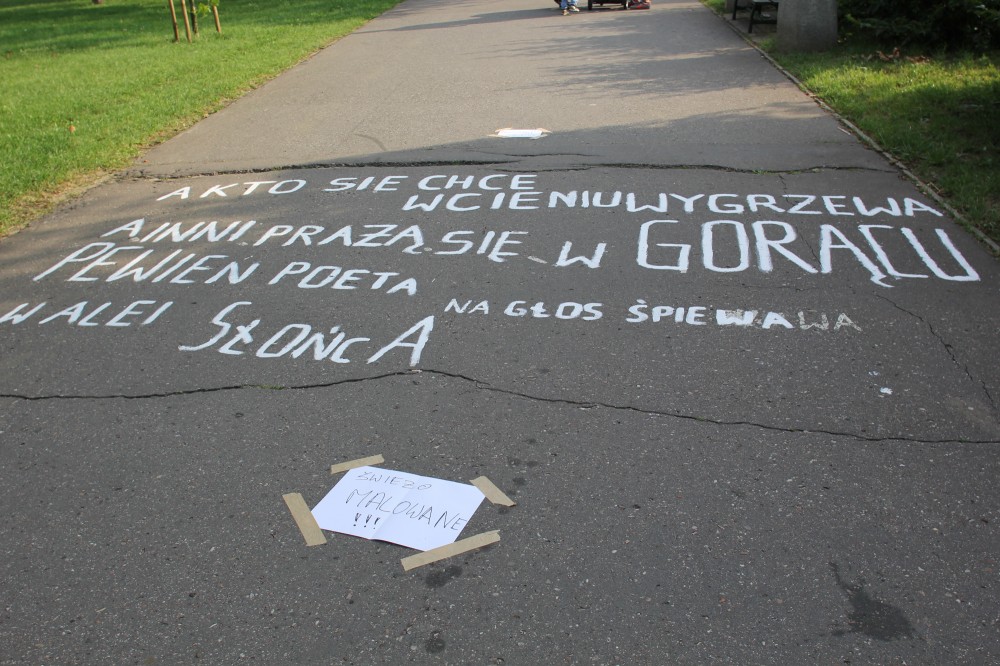 A KTO SIĘ CHCE
W CIENIU WYGRZEWA
A INNI PRAŻĄ SIĘ W GORĄCU
PEWIEN POETA
W ALEI SŁOŃCA
NA GŁOS ŚPIEWAWA
ŚWIEŻO
MALOWANE
!!!